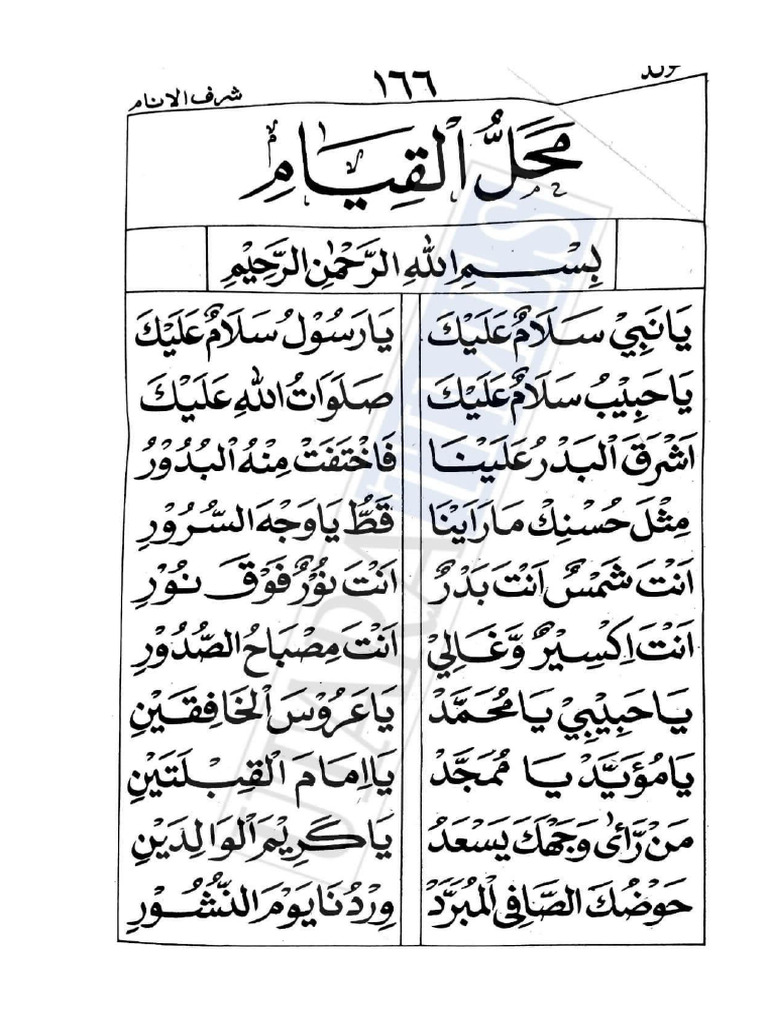 شرف الانام ١٦٦
مَحَلُّ الْقِيَامِ
بِسْمِ اللهِ الرَّحْمٰنِ الرَّحِيْمِ
يَا نَبِيْ سَلَامٌ عَلَيْكَ يَا رَسُوْلُ سَلَامٌ عَلَيْكَ
يَا حَبِيْبُ سَلَامٌ عَلَيْكَ صَلَوَاتُ اللهِ عَلَيْكَ
اَشْرَقَ الْبَدْرُ عَلَيْنَا فَاخْتَفَتْ مِنْهُ الْبُدُوْرُ
مِثْلَ حُسْنِكْ مَا رَاَيْنَا قَطُّ يَا وَجْهَ السُّرُوْرِ
اَنْتَ شَمْسٌ اَنْتَ بَدْرٌ اَنْتَ نُوْرٌ فَوْقَ نُوْرِ
اَنْتَ اِكْسِيْرٌ وَّغَالِيْ اَنْتَ مِصْبَاحُ الصُّدُوْرِ
يَا حَبِيْبِيْ يَا مُحَمَّدْ يَا عَرُوْسَ الْخَافِقَيْنِ
يَا مُؤَيَّدْ يَا مُمَجَّدْ يَا اِمَامَ الْقِبْلَتَيْنِ
مَنْ رَّاٰى وَجْهَكَ يَسْعَدُ يَا كَرِيْمَ الْوَالِدَيْنِ
حَوْضُكَ الصَّافِى الْمُبَرَّدْ وِرْدُنَا يَوْمَ النُّشُوْرِ
UTARATIMES